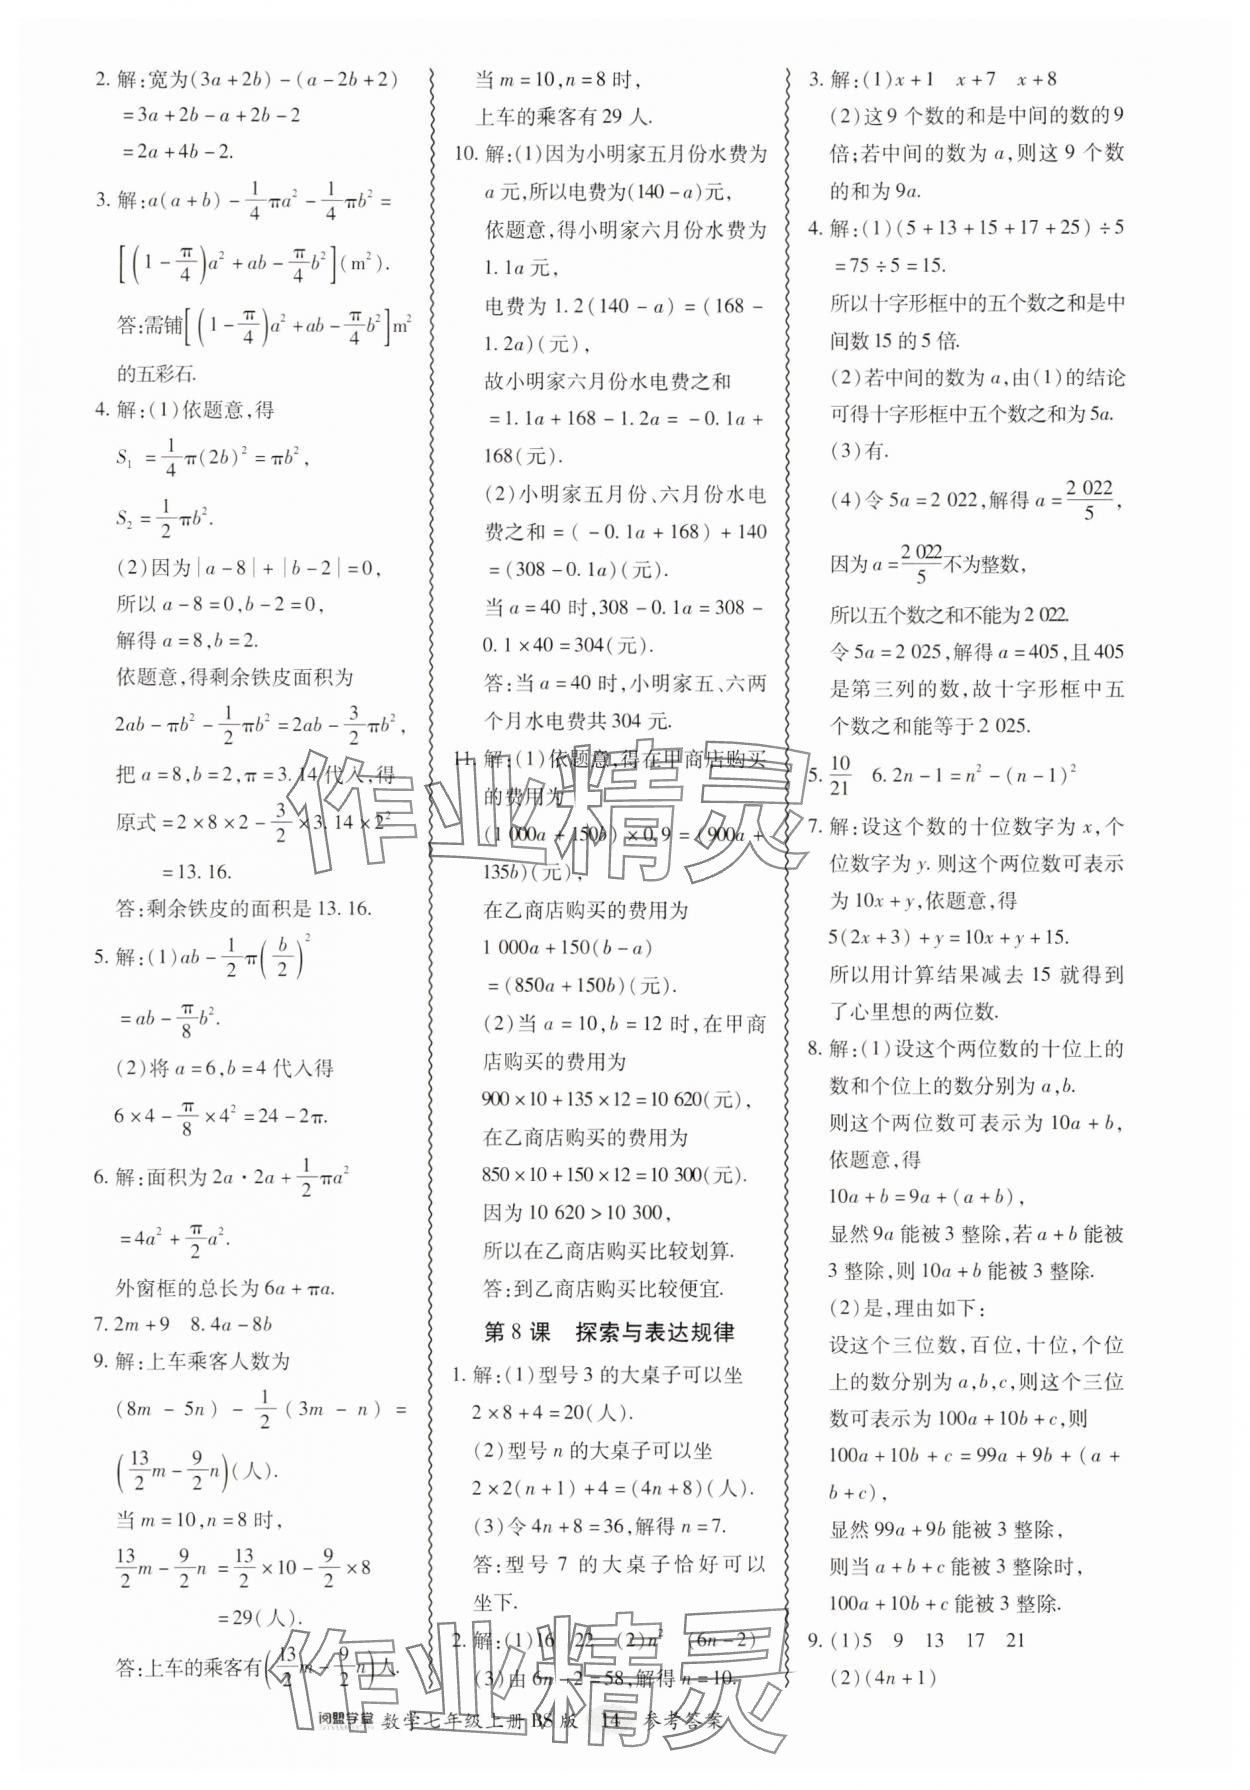 2. 解:宽为(3a+2b)-(a-2b+2)
=3a+2b-a+2b-2
=2a+4b-2.
3. 解:a(a+b)-1/4πa²-1/4πb²=
[(1-π/4)a²+ab-π/4b²](m²).
答:需铺[(1-π/4)a²+ab-π/4b²]m²
的五彩石.
4. 解:(1)依题意,得
S₁=1/4π(2b)²=πb²,
S₂=1/2πb².
(2)因为|a-8|+|b-2|=0,
所以a-8=0,b-2=0,
解得a=8,b=2.
依题意,得剩余铁皮面积为
2ab-πb²-1/2πb²=2ab-3/2πb²,
把a=8,b=2,π=3.14代入,得
原式=2×8×2-3/2×3.14×2²
=13.16.
答:剩余铁皮的面积是13.16.
5. 解:(1)ab-1/2π(b/2)²
=ab-π/8b².
(2)将a=6,b=4代入得
6×4-π/8×4²=24-2π.
6. 解:面积为2a·2a+1/2πa²
=4a²+π/2a².
外窗框的总长为6a+πa.
7. 2m+9 8. 4a-8b
9. 解:上车乘客人数为
(8m-5n)-1/2(3m-n)=
(13/2m-9/2n)(人).
当m=10,n=8时,
13/2m-9/2n=13/2×10-9/2×8
=29(人).
答:上车的乘客有(13/2m-9/2n)人.
当m=10,n=8时,
上车的乘客有29人.
10. 解:(1)因为小明家五月份水费为
a元,所以电费为(140-a)元,
依题意,得小明家六月份水费为
1.1a元,
电费为1.2(140-a)=(168-
1.2a)(元),
故小明家六月份水电费之和
=1.1a+168-1.2a=-0.1a+
168(元).
(2)小明家五月份、六月份水电
费之和=(-0.1a+168)+140
=(308-0.1a)(元).
当a=40时,308-0.1a=308-
0.1×40=304(元).
答:当a=40时,小明家五、六两
个月水电费共304元.
11. 解:(1)依题意,得在甲商店购买
的费用为
(1 000a+150b)×0.9=(900a+
135b)(元),
在乙商店购买的费用为
1 000a+150(b-a)
=(850a+150b)(元).
(2)当a=10,b=12时,在甲商
店购买的费用为
900×10+135×12=10 620(元),
在乙商店购买的费用为
850×10+150×12=10 300(元).
因为10 620>10 300,
所以在乙商店购买比较划算.
答:到乙商店购买比较便宜.
第8课 探索与表达规律
1. 解:(1)型号3的大桌子可以坐
2×8+4=20(人).
(2)型号n的大桌子可以坐
2×2(n+1)+4=(4n+8)(人).
(3)令4n+8=36,解得n=7.
答:型号7的大桌子恰好可以
坐下.
2. 解:(1)16 22 (2)n² (6n-2)
(3)由6n-2=58,解得n=10.
3. 解:(1)x+1 x+7 x+8
(2)这9个数的和是中间的数的9
倍;若中间的数为a,则这9个数
的和为9a.
4. 解:(1)(5+13+15+17+25)÷5
=75÷5=15.
所以十字形框中的五个数之和是中
间数15的5倍.
(2)若中间的数为a,由(1)的结论
可得十字形框中五个数之和为5a.
(3)有.
(4)令5a=2 022,解得a=2 022/5,
因为a=2 022/5不为整数,
所以五个数之和不能为2 022.
令5a=2 025,解得a=405,且405
是第三列的数,故十字形框中五
个数之和能等于2 025.
5. 10/21 6. 2n-1=n²-(n-1)²
7. 解:设这个数的十位数字为x,个
位数字为y.则这个两位数可表示
为10x+y,依题意,得
5(2x+3)+y=10x+y+15.
所以用计算结果减去15就得到
了心里想的两位数.
8. 解:(1)设这个两位数的十位上的
数和个位上的数分别为a,b.
则这个两位数可表示为10a+b,
依题意,得
10a+b=9a+(a+b),
显然9a能被3整除,若a+b能被
3整除,则10a+b能被3整除.
(2)是,理由如下:
设这个三位数,百位,十位,个位
上的数分别为a,b,c,则这个三位
数可表示为100a+10b+c,则
100a+10b+c=99a+9b+(a+
b+c),
显然99a+9b能被3整除,
则当a+b+c能被3整除时,
100a+10b+c能被3整除.
9. (1)5 9 13 17 21
(2)(4n+1)
阅盟学堂 数学七年级上册BS版 14 参考答案
作业精灵
作业精灵